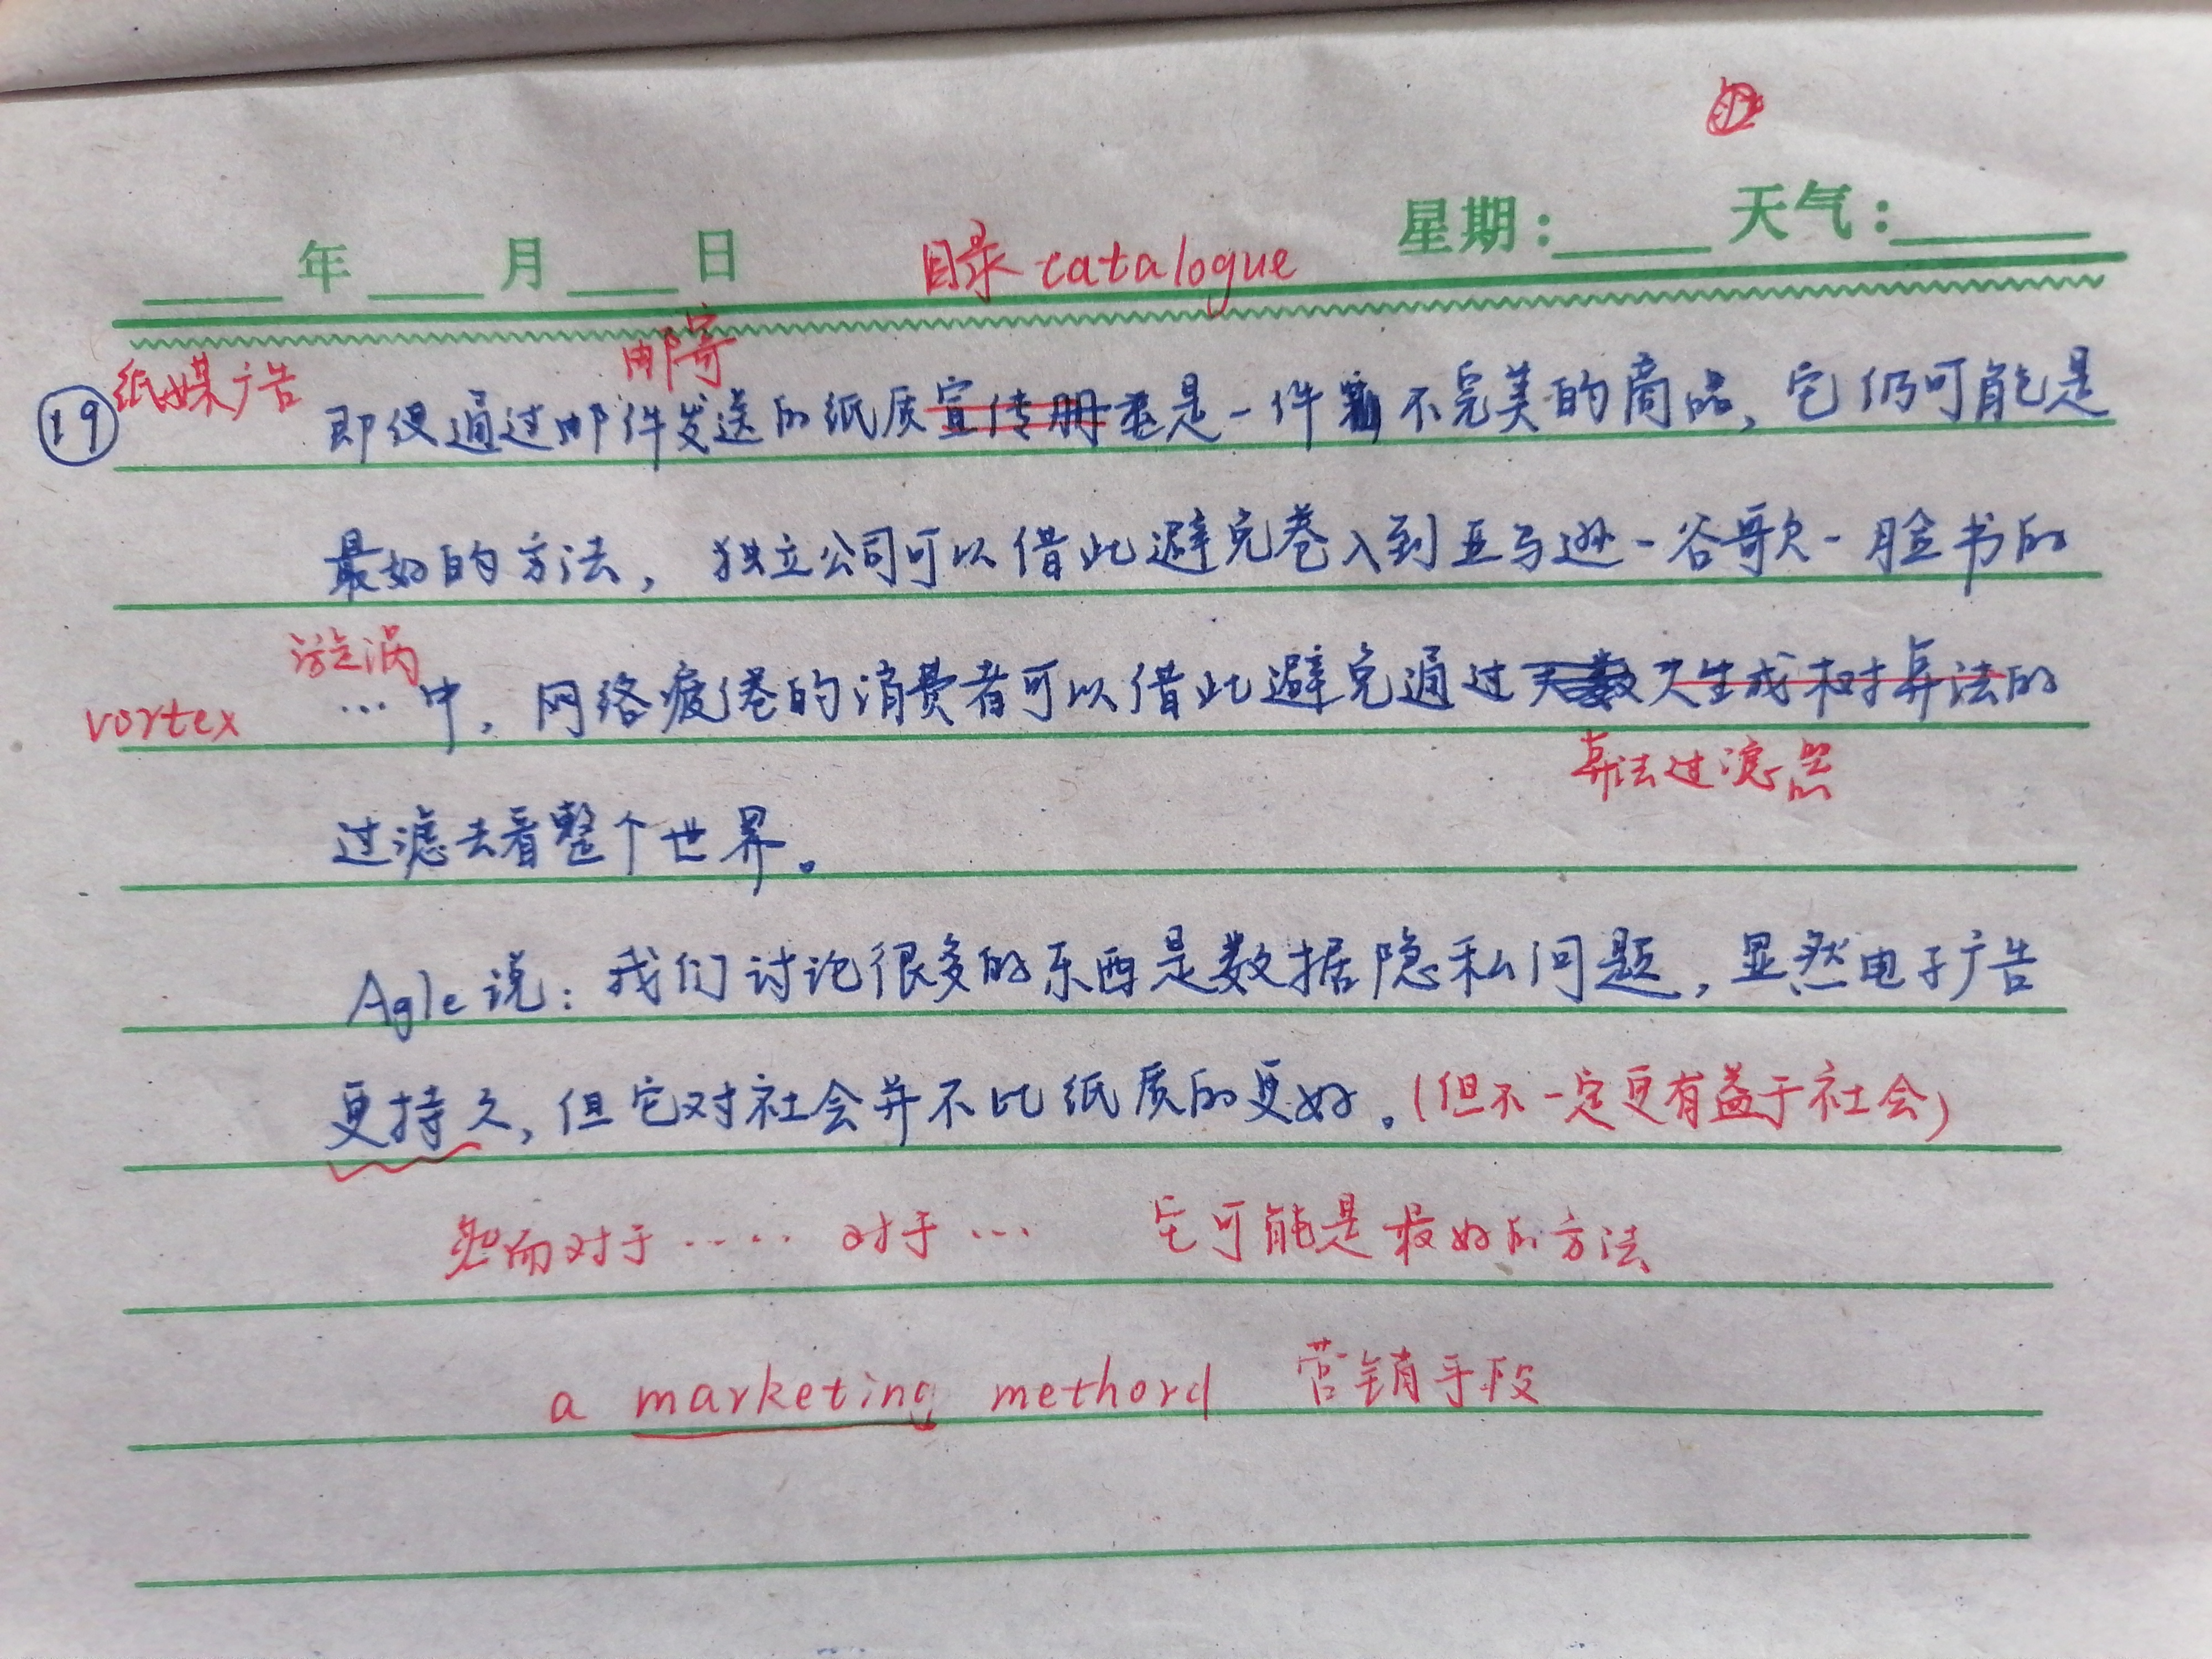 星期：____ 天气：____
____年____月____日 目录 catalogue
纸媒广告 邮寄
19 即使通过邮件发送的纸质宣传册是一件不完美的商品，它仍可能是
最好的方法，独立公司可以借此避免卷入到亚马逊-谷歌-脸书的
漩涡
vortex …中，网络疲倦的消费者可以借此避免通过天数人生成树算法的
算法过滤器
过滤去看整个世界。
Agle说：我们讨论很多的东西是数据隐私问题，显然电子广告
更持久，但它对社会并不比纸质的更好。（但不一定更有益于社会）
然而对于····· 对于… 它可能是最好的方法
a marketing methord 营销手段